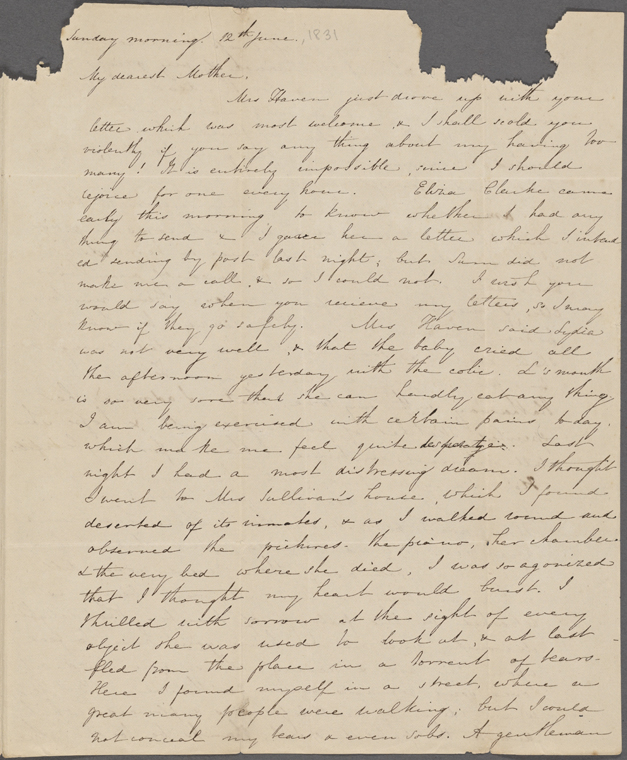 Sunday morning. 12th June. 1831
My dearest Mother,
Mrs Haven just drove up with your
letter which was most welcome & I shall scold you
violently if you say any thing about my having too
many! It is entirely impossible, since I should
rejoice for one every hour. Eliza Clarke came
early this morning to know whether I had any
thing to send & I gave her a letter which I intend
ed sending by post last night; but did not
make me a call, & so I could not. I wish you
would say when you recieve my letters, so I may
know if they go safely. Mrs Haven said Lydia
was not very well, & that the baby cried all
the afternoon yesterday with the colic. L's mouth
is so very sore that she can hardly eat any thing.
I am being exercised with certain pains to day.
which make me feel quite. Last
night I had a most distressing dream. I thought
I went to Mrs Sullivan's house, which I found
deserted of its inmates, & as I walked round and
observed the pictures. the piano, her chamber
& the very bed where she died, I was so agonized
that I thought my heart would burst. I
thrilled with sorrow at the sight of every
object she was used to look at, & at last
fled from the place in a torrent of tears.
Here I found myself in a street, where a
great many people were walking; but I could
not conceal my tears or even sobs. A gentleman